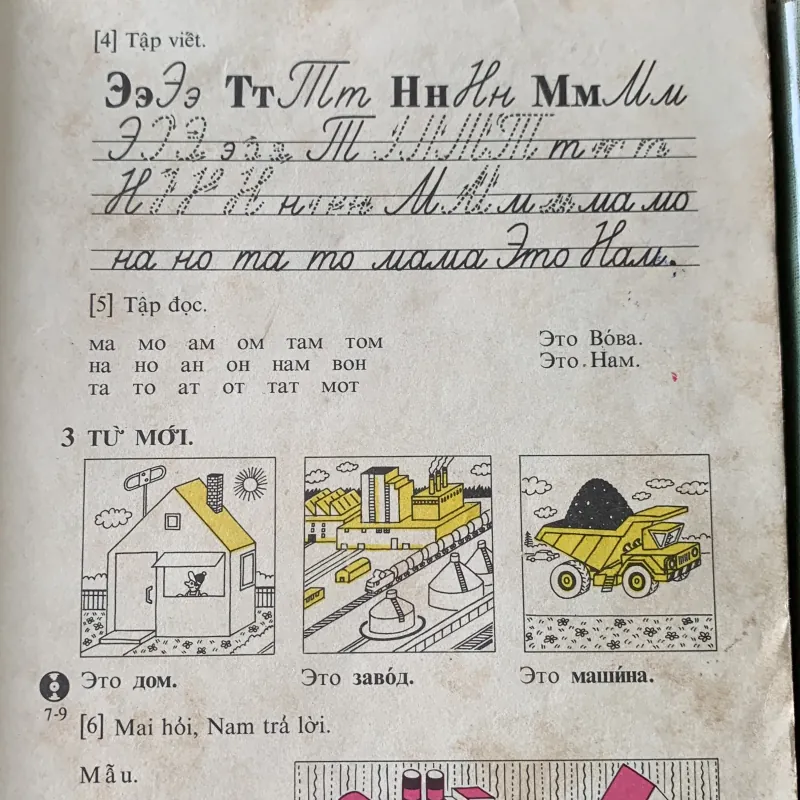 [4] Tập viết.
Ээ Ээ Тт Тт Нн Нн Мм Мм
Э Э Э э э э Т Т Т т т т
Н Н Н Н н н н н М М М м м ма мо
на но та то мама Это Нам.
[5] Tập đọc.
ма мо ам ом там том Это Во́ва.
на но ан он нам вон Это Нам.
та то ат от тат мот
3 TỪ MỚI.
Это дом. Это заво́д. Это маши́на.
7-9
[6] Mai hỏi, Nam trả lời.
Mẫu.